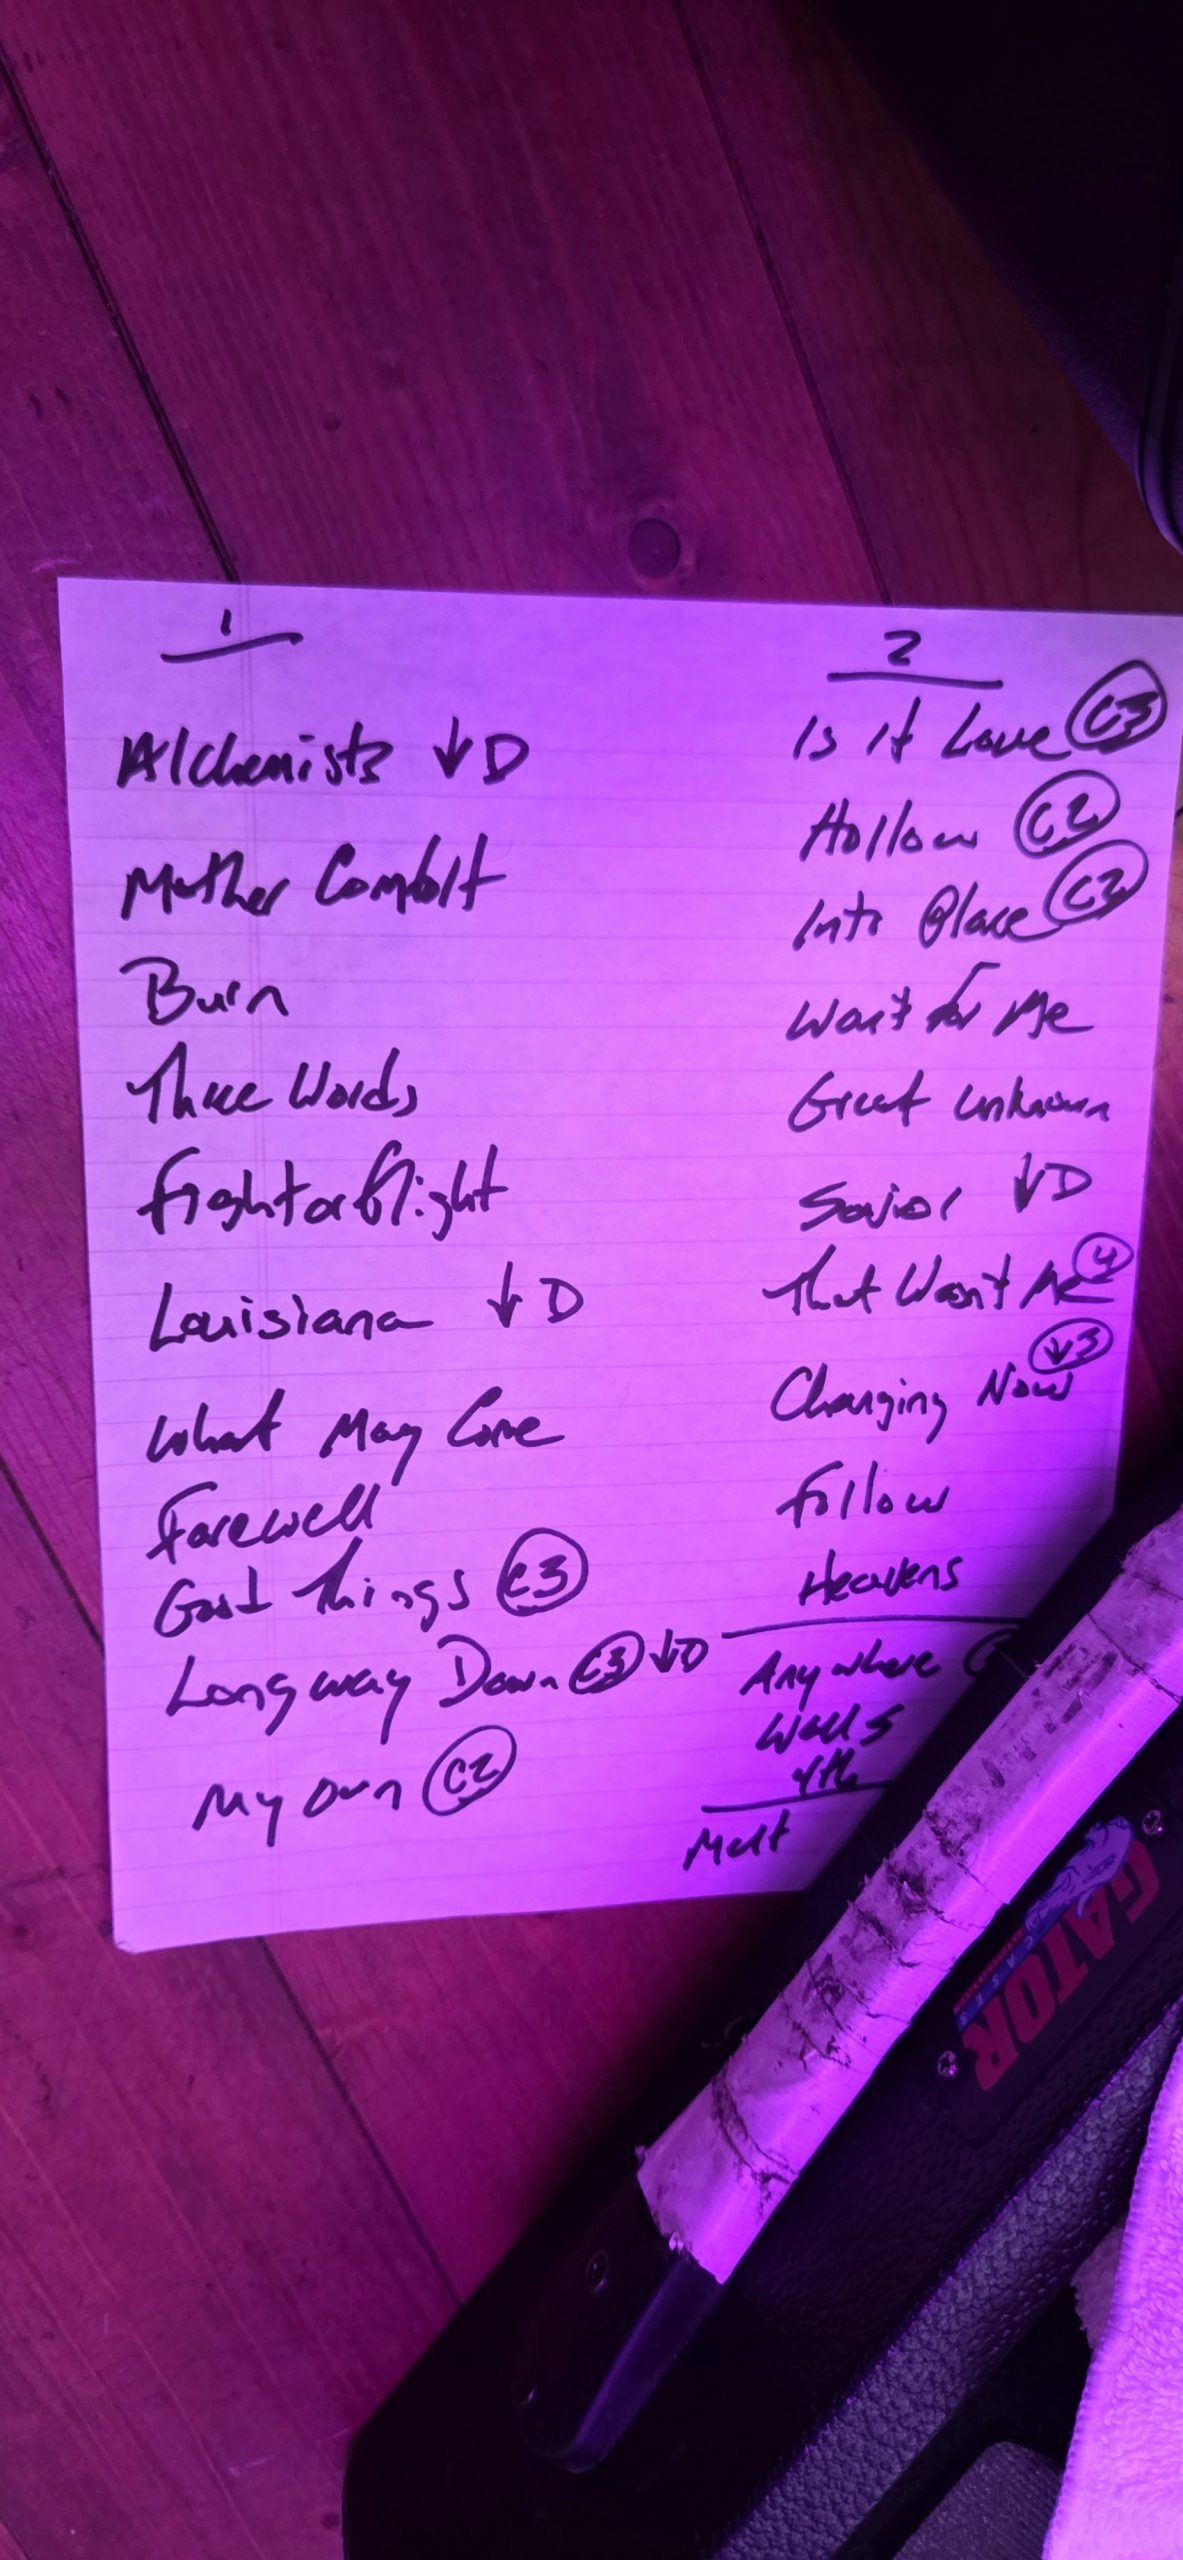 1
Alchemists ↓D
Mother Comfort
Burn
Three Words
Fight or flight
Louisiana ↓D
What May Come
Farewell
Good Things C3
Long way Down C3 ↓D
My own C2
2
Is it Love C3
Hollow C2
Into Place C2
Wait for Me
Great unknown
Savior ↓D
That Wasn't Me 4
Changing Now ↓3
Follow
Heavens
Anywhere
Walls
4th
Melt
GATOR
CASES